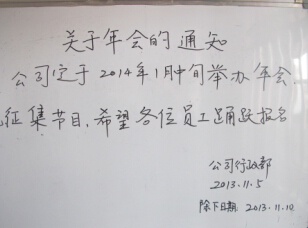 关于年会的通知
公司定于2014年1月中旬举办年会
征集节目,希望各位员工踊跃报名
公司行政部
2013.11.5
除下日期 2013.11.10